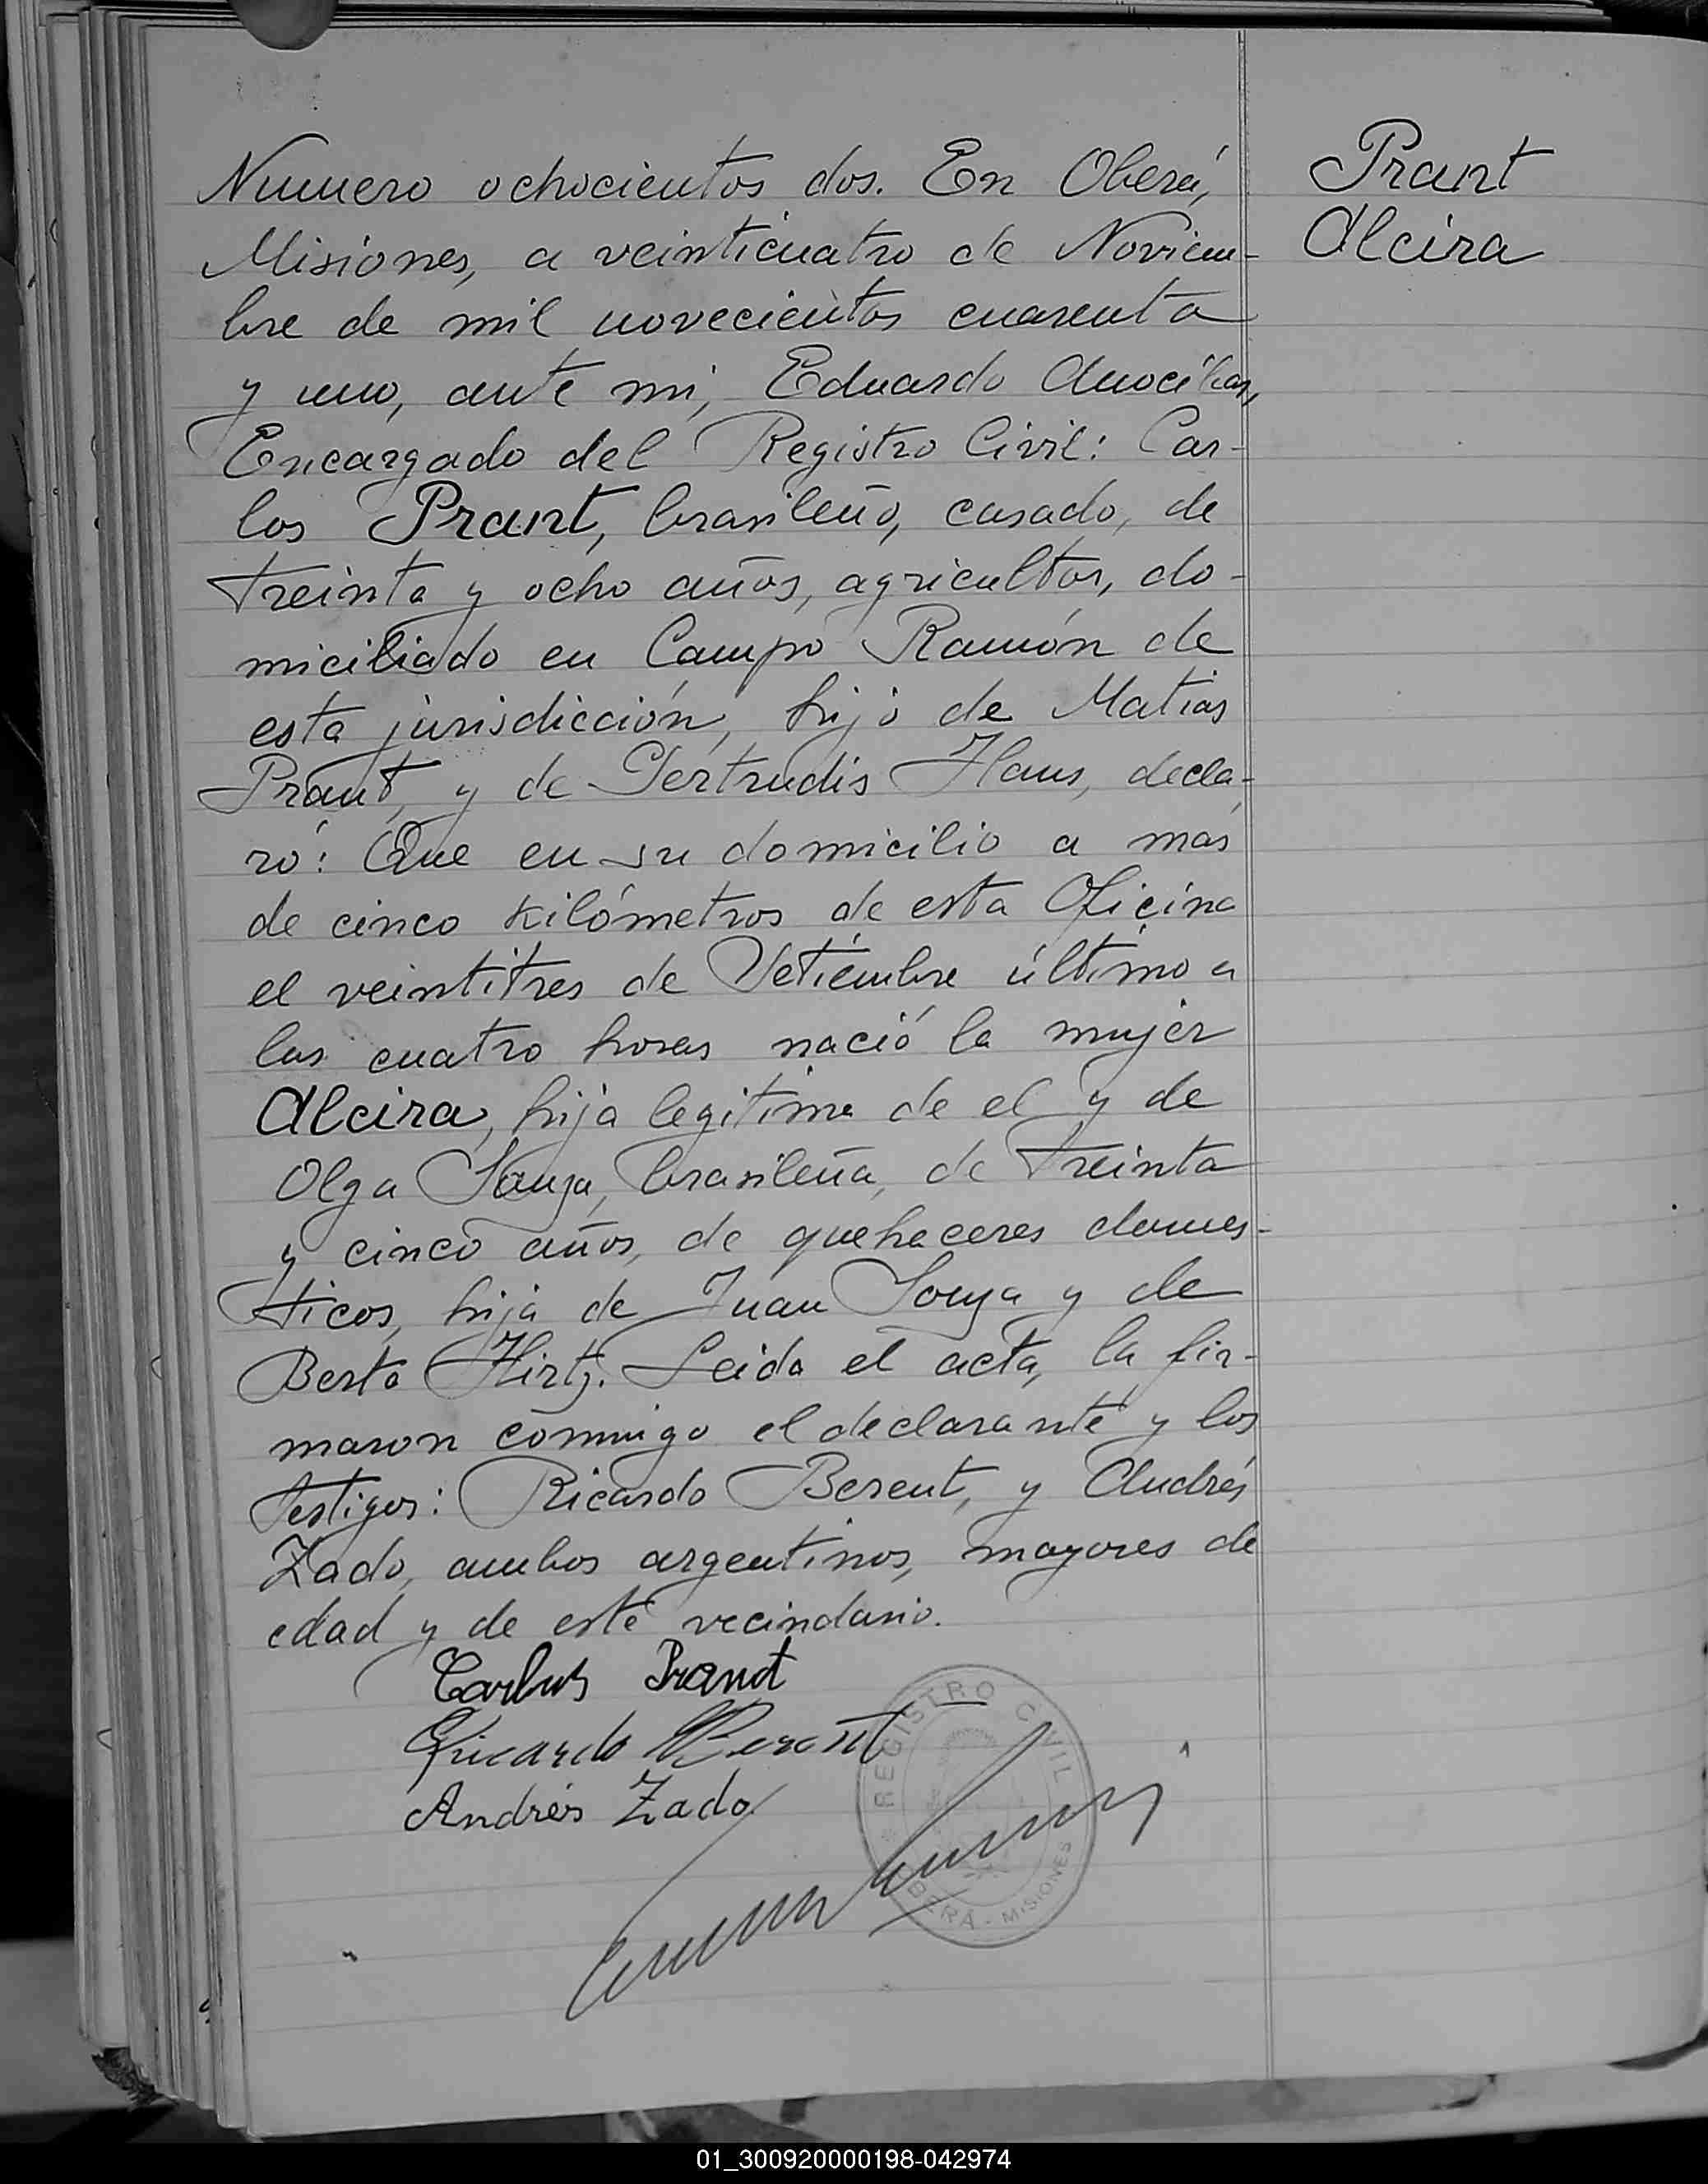 Numero ochocientos dos. En Oberá,
Misiones, a veinticuatro de Noviem-
bre de mil novecientos cuarenta
y uno, ante mi, Eduardo
Encargado del Registro Civil: Car-
los Prant, brasileño, casado, de
treinta y ocho años, agricultor, do-
miciliado en Campo Ramón de
esta jurisdicción, hijo de Matias
Prant, y de Gertrudis Haus, decla-
ró: Que en su domicilio a mas
de cinco kilómetros de esta Oficina
el veintitres de Setiembre último a
las cuatro horas nació la mujer
Alcira, hija legitima de el y de
Olga Souza, brasileña, de treinta
y cinco años, de quehaceres domes-
ticos, hija de Juan Souza y de
Berta Hirtz. Leida el acta, la fir-
maron conmigo el declarante y los
testigos: Ricardo Berent, y Andrés
Zado, ambos argentinos, mayores de
edad y de este vecindario.
Carlos Prandt
Ricardo Berent
Andrés Zado
REGISTRO CIVIL
OBERÁ - MISIONES
Prant
Alcira
01_300920000198-042974